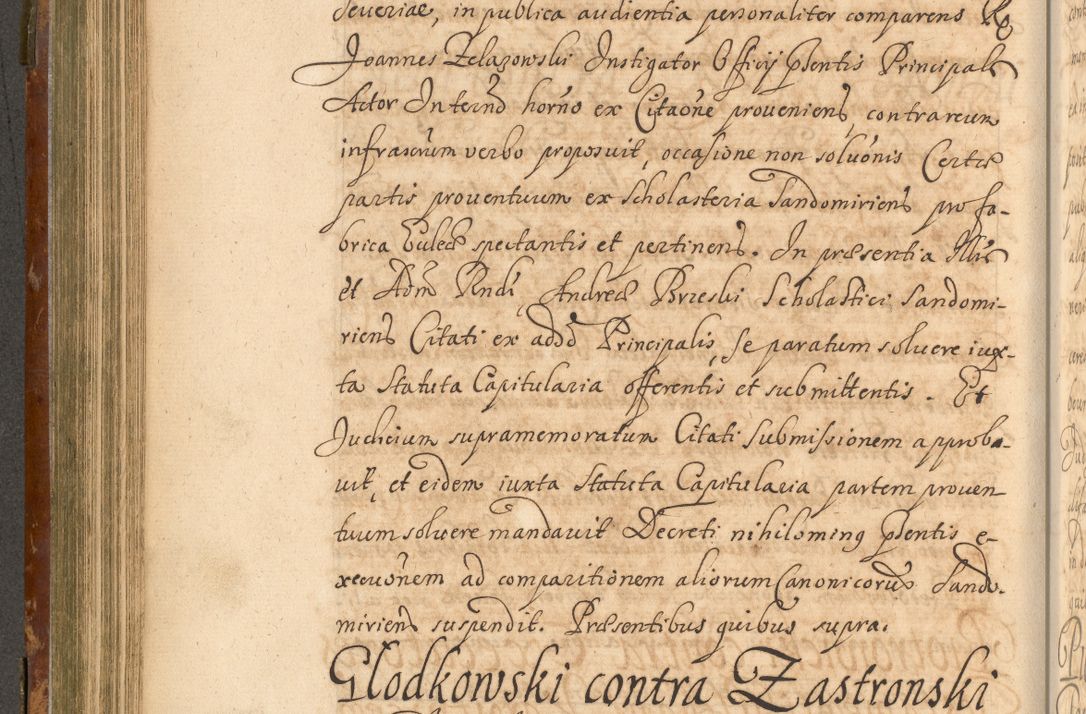 Severiae, in publica audientia personaliter comparens R
Joannes Zelazowski Instigator Officij pñtis Principalis
Actor In termõ horno ex Citaõne proueniens, contra reum
infrascrum verbo proposuit, occasione non soluõnis Certæ
partis prouentuum ex Scholasteria Sandomiriens pro fa-
brica Eccleæ spectantis et pertinens. In præsentia Illris
et Adm Rndi Andreæ Brzeski Scholastici Sandomi-
riens Citati ex addo Principalis, se paratum soluere iux-
ta Statuta Capitularia offerentis et submittentis. Et
Judicium supramemoratum Citati submissionem approba-
uit, et eidem iuxta Statuta Capitularia partem prouen
tuum soluere mandauit Decreti nihilominq pñtis e-
xecuõnem ad comparitionem aliorum Canonicorum Sando-
miriens suspendit. Præsentibus quibus supra.
Glodkowski contra Zastronski